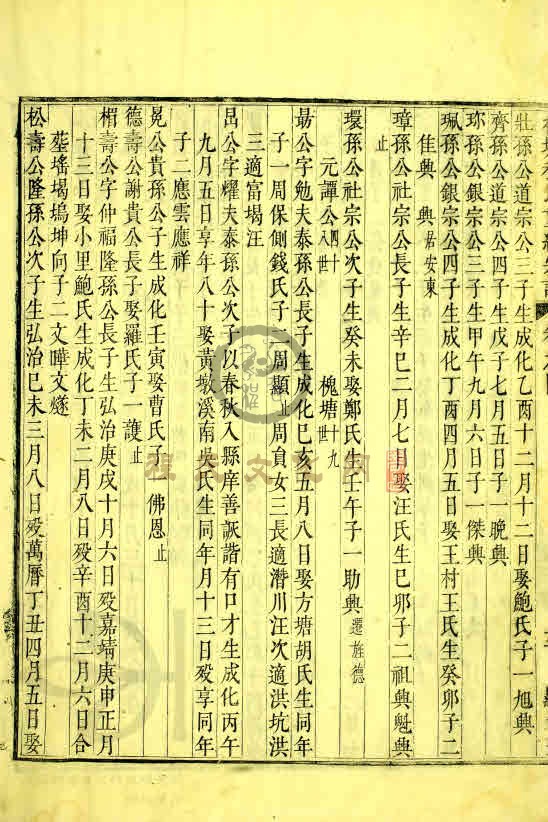 壯孫公道宗公三子生成化乙酉十二月十二日娶鮑氏子一旭興
齊孫公道宗公四子生戊子七月五日子一晚興
珎孫公銀宗公三子生甲午九月六日子一傑興
珮孫公銀宗公四子生成化丁酉四月五日娶王村王氏生癸卯子二
佳興 興 居安東
璋孫公社宗公長子生辛巳二月七日娶汪氏生巳卯子二祖興魁興
止
環孫公社宗公次子生癸未娶鄭氏生壬午子一助興 遷旌德
元譚公 四十八世 槐塘 十九世
勗公字勉夫泰孫公長子生成化巳亥五月八日娶方塘胡氏生同年
子一周保側錢氏子一周顯 止 周貞女三長適潛川汪次適洪坑洪
三適富堨汪
昌公字耀夫泰孫公次子以春秋入縣庠善詼諧有口才生成化丙午
九月五日享年八十娶黃墩溪南吳氏生同年月十三日殁享同年
子二應雲應祥
晃公貴孫公子生成化壬寅娶曹氏子一佛恩 止
德壽公謝貴公長子娶羅氏子一護 止
楣壽公字仲福隆孫公長子生弘治庚戌十月六日殁嘉靖庚申正月
十三日娶小里鮑氏生成化丁未二月八日殁辛酉十二月六日合
塟瑤堨塢坤向子二文曄文燧
松壽公隆孫公次子生弘治巳未三月八日殁萬曆丁丑四月五日娶
程氏文化网